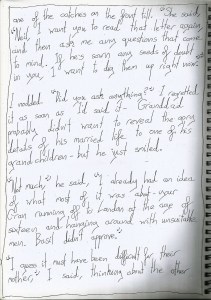 one of the catches on the front till. "She said,
"Well, I want you to read that letter again
and then ask me any questions that come
to mind. If he's sown any seeds of doubt
in you, I want to dig them up right now."
I nodded. "Did you ask anything?" I regretted
it as soon as I'd said it. Granddad
probably didn't want to reveal the gory
details of his married life to one of his
grandchildren - but he just smiled.
"Not much," he said, "I already had an idea
of what most of it was about - your
Gran running off to London at the age of
sixteen and hanging around with unsuitable
men. Basil didn't approve."
"I guess it must have been difficult for their
mother," I said, thinking about the other